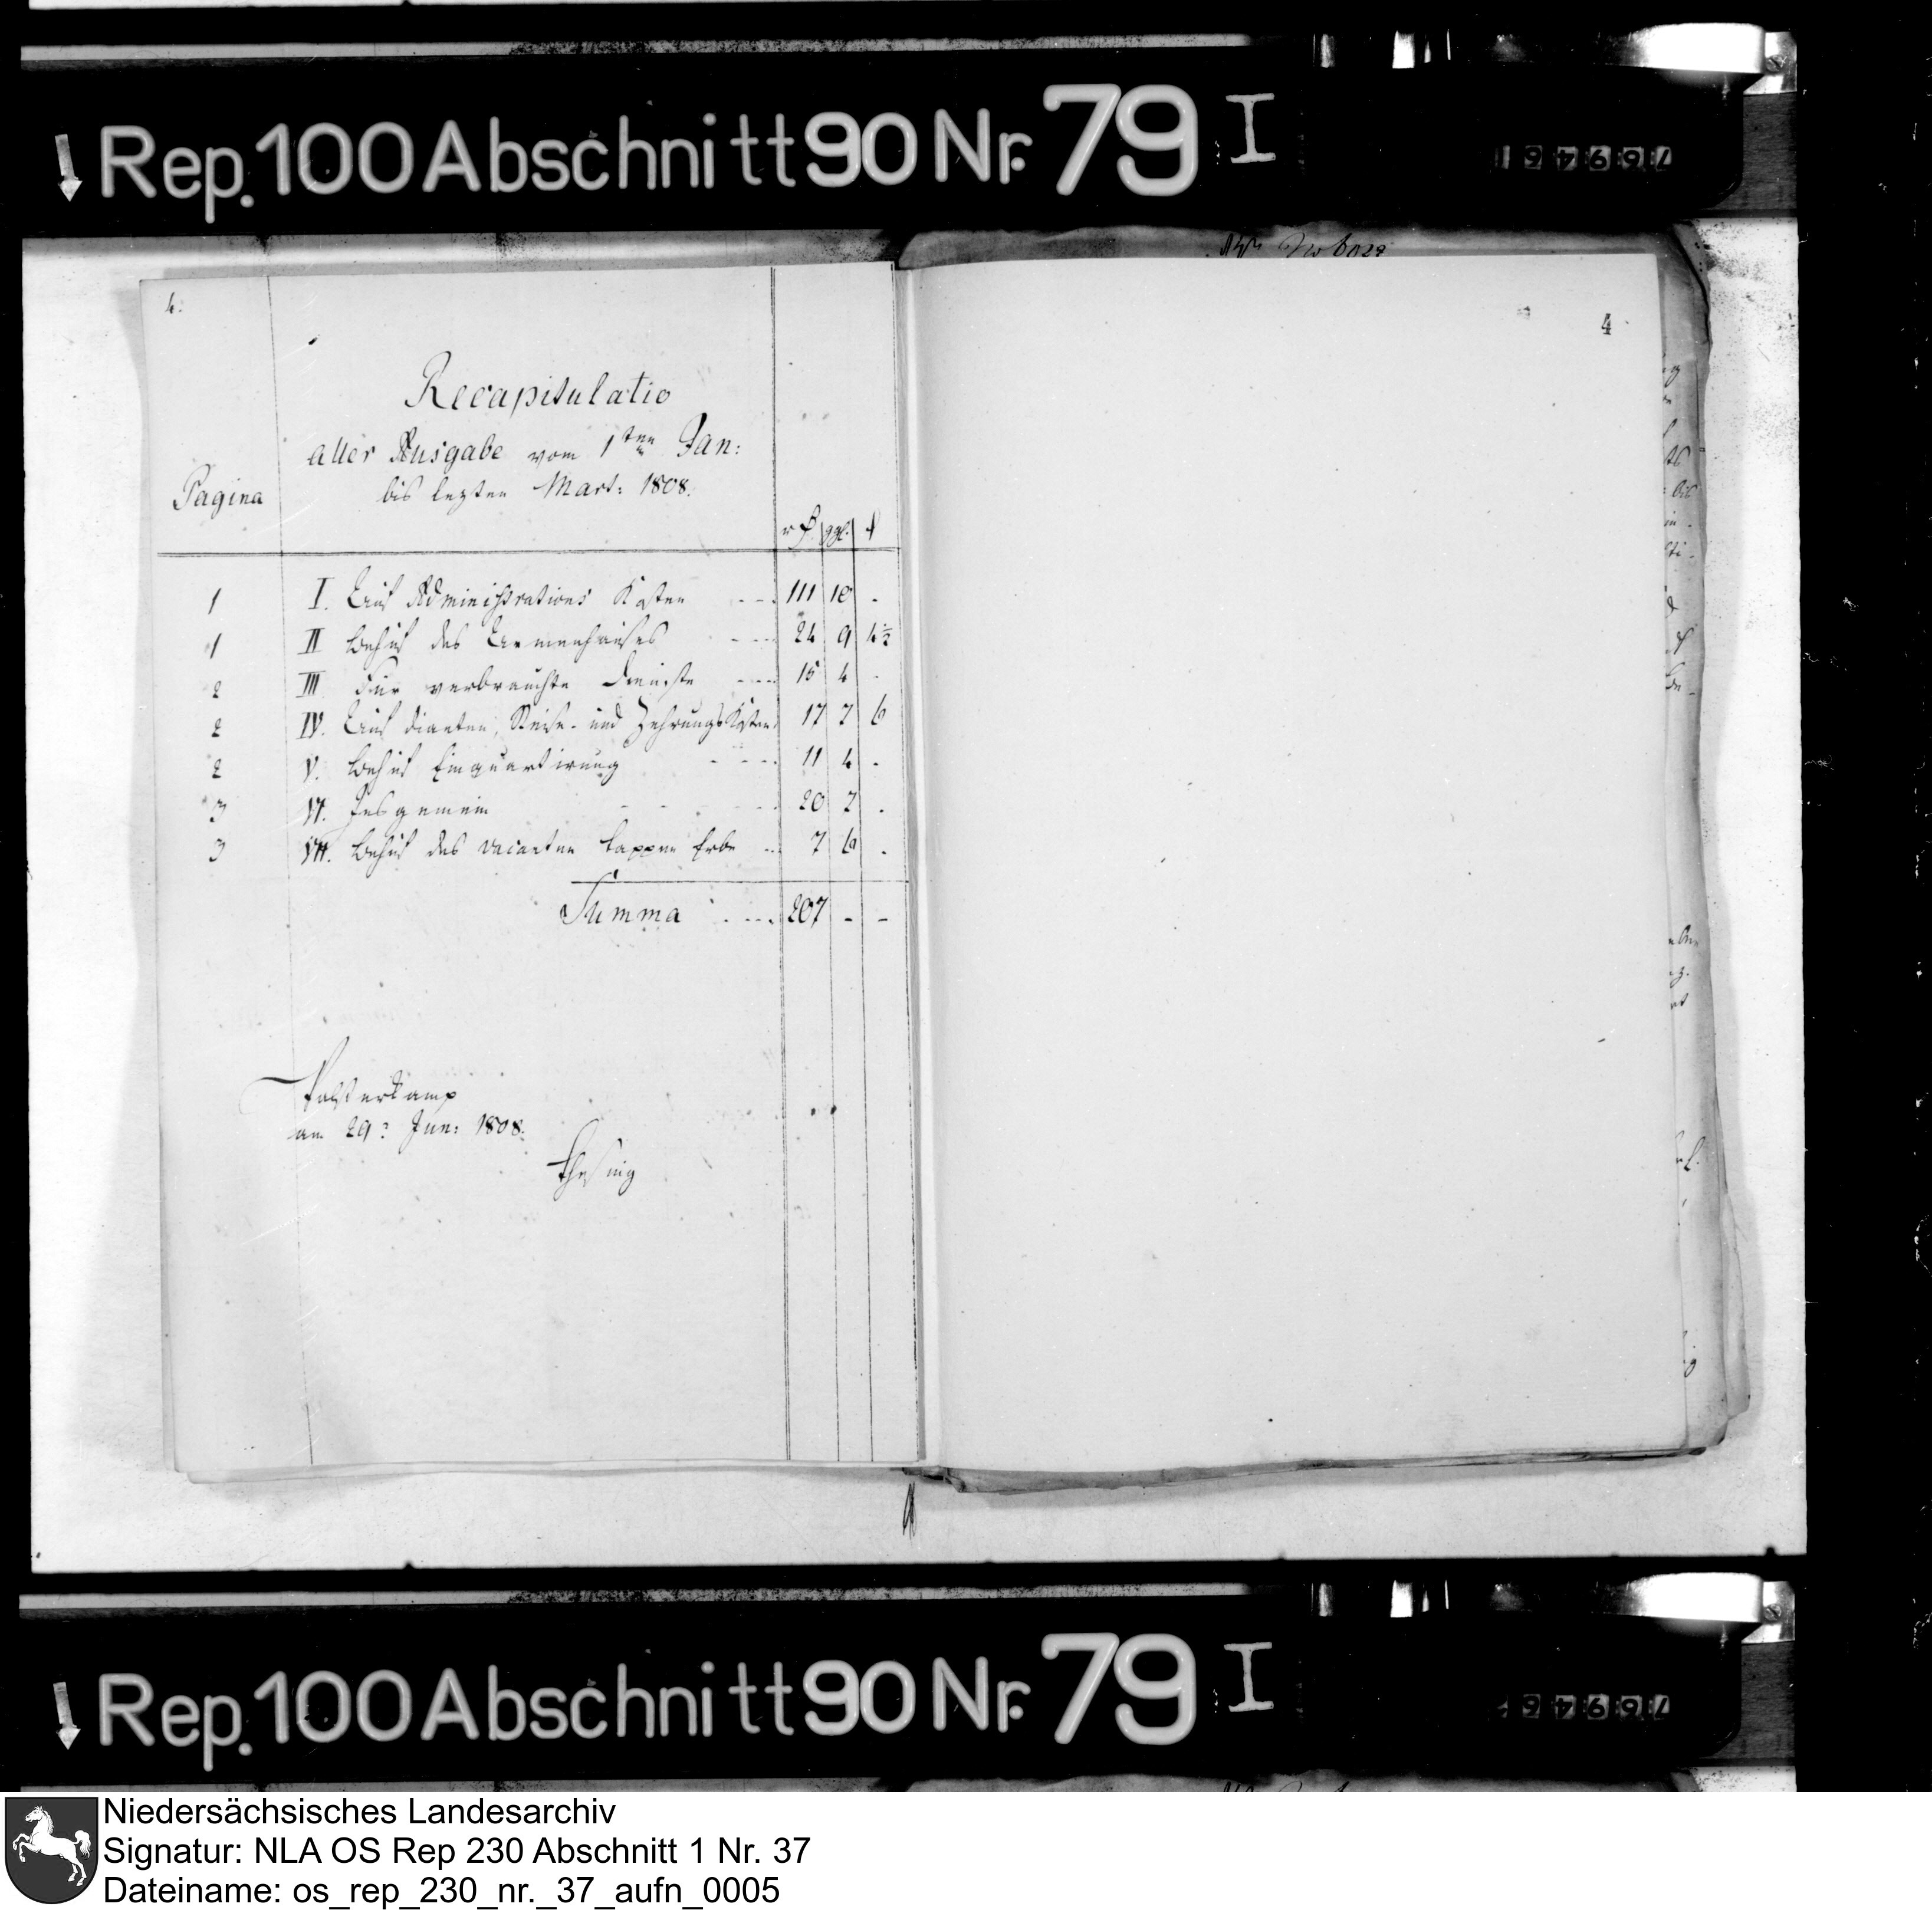 Rep. 100 Abschnitt 90 Nr. 79 I
769461
4.
Recapitulatio
aller Ausgabe vom 1ten Jan:
Pagina bis lezten Mart: 1808.
rß ggl. ₰
1 I. Auf Administrations Kosten 111 10 -
1 II Behuf des Armenhauses 24 9 4½
2 III Für verbrauchte Dienste 15 4 -
2 IV. Auf Diaeten, Reise- und Zehrungs Kosten 17 7
2 V. Behuf Einquartirung 11 4 -
3 VI. Insgemein 20 7 -
3 VII. Behuf des vacanten Erbe 7
Summa 207 - -
Palsterkamp
am 29t Jun: 1808.
Thesing
4
Rep. 100 Abschnitt 90 Nr. 79 I
Niedersächsisches Landesarchiv
Signatur: NLA OS Rep 230 Abschnitt 1 Nr. 37
Dateiname: os_rep_230_nr._37_aufn_0005